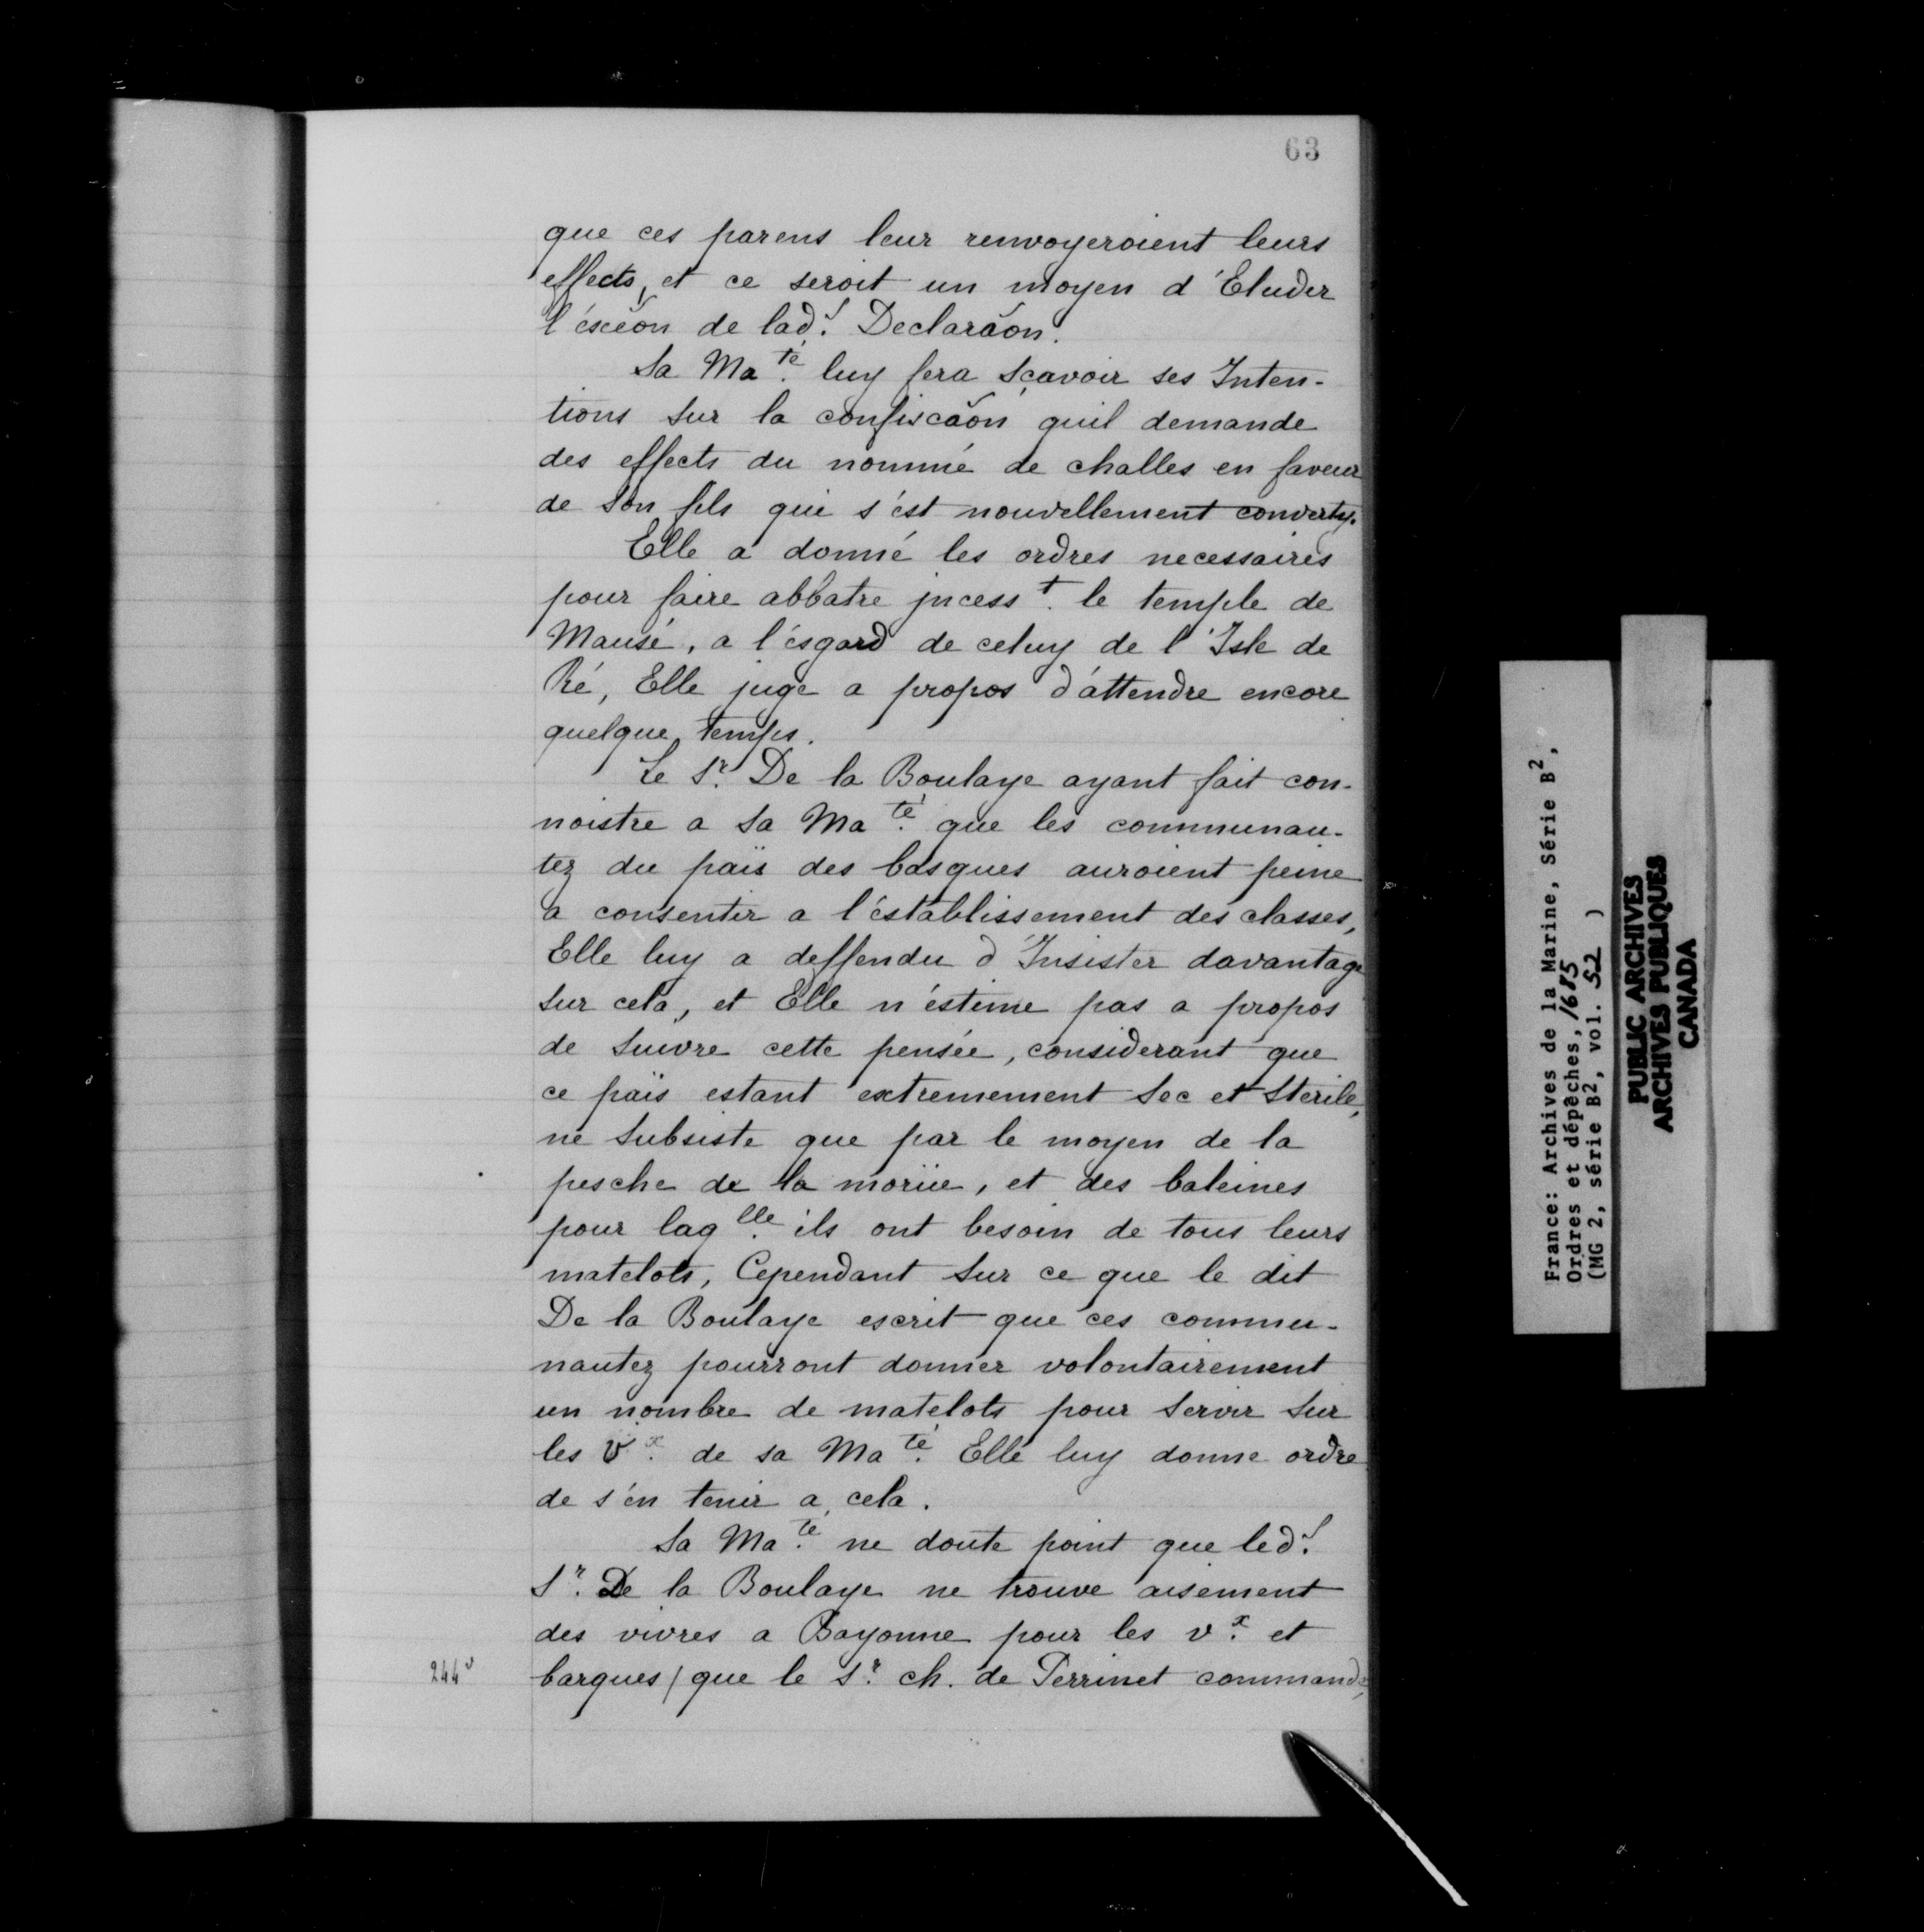 63
que ces parens leur renvoyeroient leurs
effects, et ce seroit un moyen d'Eluder
l'éxcẽon de lad.e Declarãon.
Sa Ma.té luy fera sçavoir ses Inten-
tions sur la confiscãon quil demande
des effects du nommé de challes en faveur
de son fils qui s'est nouvellement converty.
Elle a donné les ordres necessaires
pour faire abbatre jncess.t le temple de
Mausé, a l'ésgard de celuy de l'Isle de
Ré, Elle juge a propos d'attendre encore
quelque temps.
Le S.r De la Boulaye ayant fait con-
noistre a Sa Ma.té que les communau-
tez du païs des basques auroient peine
a consentir a l'éstablissement des classes,
Elle luy a deffendu d'Insister davantage
sur cela, et Elle n'éstime pas a propos
de suivre cette pensée, considerant que
ce païs estant extremement sec et sterile,
ne subsiste que par le moyen de la
pesche de la moriie, et des baleines
pour laq.lle ils ont besoin de tous leurs
matelots, Cependant sur ce que le dit
De la Boulaye escrit que ces commu-
nautez pourront donner volontairement
un nombre de matelots pour servir sur
les V.x de sa Ma.té Elle luy donne ordre
de s'én tenir a cela.
Sa Ma.té ne doute point que led.
S.r De la Boulaye ne trouve aisement
des vivres a Bayonne pour les v.x et
244v barques / que le S.r ch. de Perrinet commande,
France: Archives de la Marine, Série B2,
Ordres et dépêches, 1685
(MG 2, série B2, vol. 52 )
PUBLIC ARCHIVES
ARCHIVES PUBLIQUES
CANADA